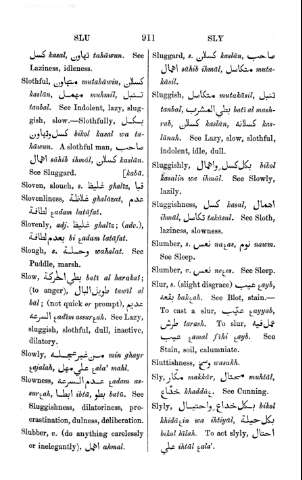 SLU 911 SLY
كسل kasal, تهاون tahàwun. See
Laziness, idleness.
Slothful, متهاون mutahàwin, كسلان
kaslàn, مهمل muhmil, تنبل
tanbal. See Indolent, lazy, slug-
gish, slow.—Slothfully, بكسل
وتهاون bikol kasal wa ta-
hàwun. A slothful man, صاحب
اهمال sàhib ihmàl, كسلان kaslàn.
See Sluggard. [kabà.
Sloven, slouch, s. غليظ ghaliz, قبا
Slovenliness, غلاظة ghalàzat, عدم
لطافة adam latàfat.
Slovenly, adj. غليظ ghaliz; (adv.),
بعدم لطافة bi adam latàfat.
Slough, s. وحلة wahalat. See
Puddle, marsh.
Slow, بطي الحركة bati al harakat;
(to anger), طويل البال tawil al
bàl; (not quick or prompt), عديم
السرعة adim assurat. See Lazy,
sluggish, slothful, dull, inactive,
dilatory.
Slowly, من غير عجلة min ghayr
ajalat, على مهل ala mahl.
Slowness, عدم السرعة adam as-
surat, ابطا ibtà, بطو batù. See
Sluggishness, dilatoriness, pro-
crastination, dulness, deliberation.
Slubber, v. (do anything carelessly
or inelegantly), اهمل ahmal.
Sluggard, s. كسلان kaslàn, صاحب
اهمال sàhib ihmàl, متكاسل muta-
kàsil.
Sluggish, متكاسل mutakàsil, تنبل
tanbal, بطي المشرب bati al mash-
rab, كسلان kaslàn, كسلانة kas-
lànah. See Lazy, slow, slothful,
indolent, idle, dull.
Sluggishly, بكل كسل واهمال bikol
kasalin wa ihmàl. See Slowly,
lazily.
Sluggishness, كسل kasal, اهمال
ihmàl, تكاسل takàsul. See Sloth,
laziness, slowness.
Slumber, s. نعس naas, نوم nawm.
See Sleep.
Slumber, v. نعس naes. See Sleep.
Slur, s. (slight disgrace) عيب ayb,
بقعه bakah. See Blot, stain.—
To cast a slur, عيّب ayyab,
طرش tarash. To slur, عمل فيه
عيب amal fihi ayb. See
Stain, soil, calumniate.
Sluttishness, وسخ wasakh.
Sly, مكار makkàr, محتال muhtàl,
خداع khaddà. See Cunning.
Slyly, بكل خداع واحتيال bikol
khidàin wa ihtiyàl, بكل حيلة
bikol hilah. To act slyly, احتال
على ihtàl ala.